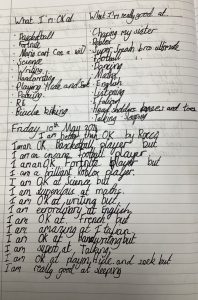 What I'm OK at. What I'm really good at.
Basketball
Chasing my sister
Fortnite
Roblox
Mario cart
Super Smash bros ultimate
Science
Football
Writing
Dancing
Handwriting
Maths
Playing Hide and Seek
English
Listening
RE
Italian
Head, shoulders knees and toes
Talking Sleeping
Friday 10th May 2024
I am better than OK by
I am OK Basketball player but
I am an insane football player
I am an OK Fortnite player but
I am a brilliant roblox player.
I am OK at Science but
I am at maths.
I am OK at writing but
I am at English
I am OK at French but
I am amazing at Italian
I am OK at handwriting but
I am expert at Talking
I am OK at Hide and seek but
I am really good at sleeping